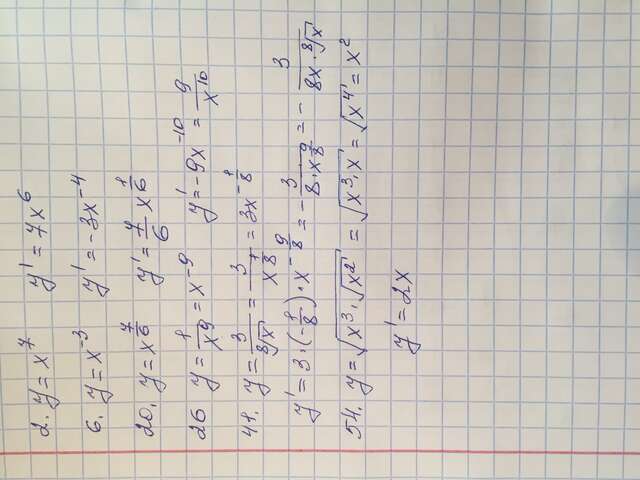 2. y = x^7   y' = 7x^6
6. y = x^-3   y' = -3x^-4
20. y = x^(7/6)   y' = 7/6 x^(1/6)
26 y = 1/x^9 = x^-9   y' = -9x^-10 = 9/x^10
41. y = 3/⁸√x = 3/x^(1/8) = 3x^(-1/8)
y' = 3·(-1/8)·x^(-9/8) = - 3/(8·x^(9/8)) = - 3/(8x·⁸√x)
54. y = √(x^3·√(x^2)) = √(x^3·x) = √(x^4) = x^2
y' = 2x